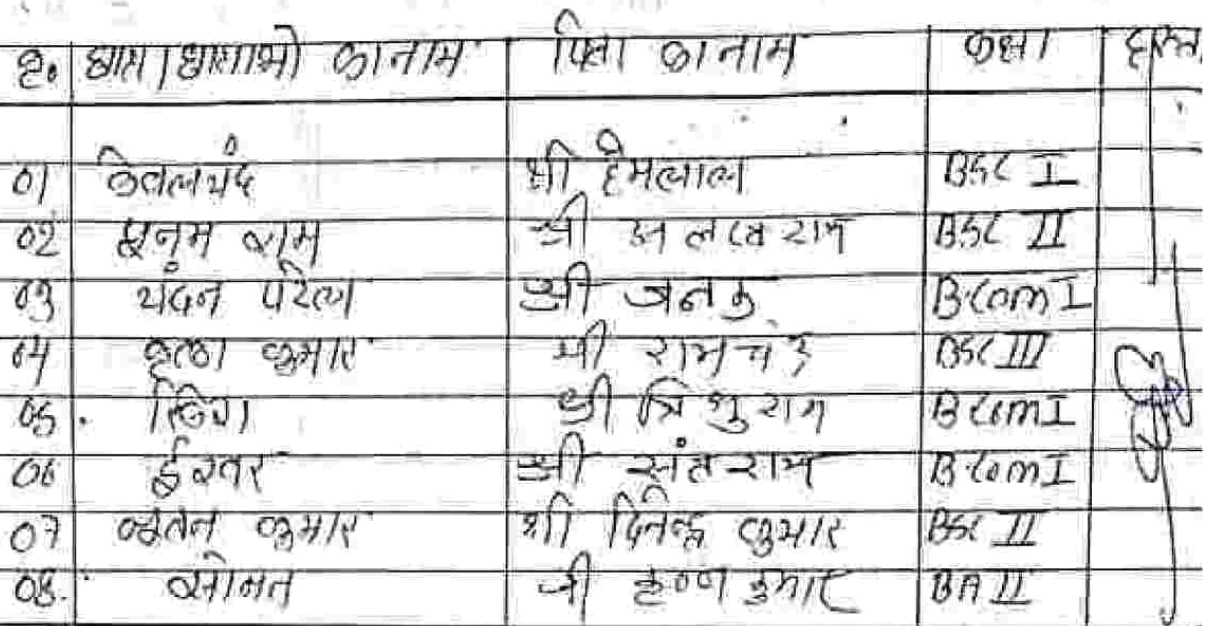 छात्र/छात्राओ का नाम पिता का नाम कक्षा हस्ता
01 केवलचंद श्री हेमलाल BSC I
02 राम श्री राम BSC II
03 चंदन पटेल श्री जनक B.Com I
04 कुमार श्री रामचंद्र BSC III
05. श्री राम B Com I
06 ईश्वर श्री संतराम B Com I
07 कुमार श्री कुमार BSC II
08. श्री कृष्ण कुमार BA II